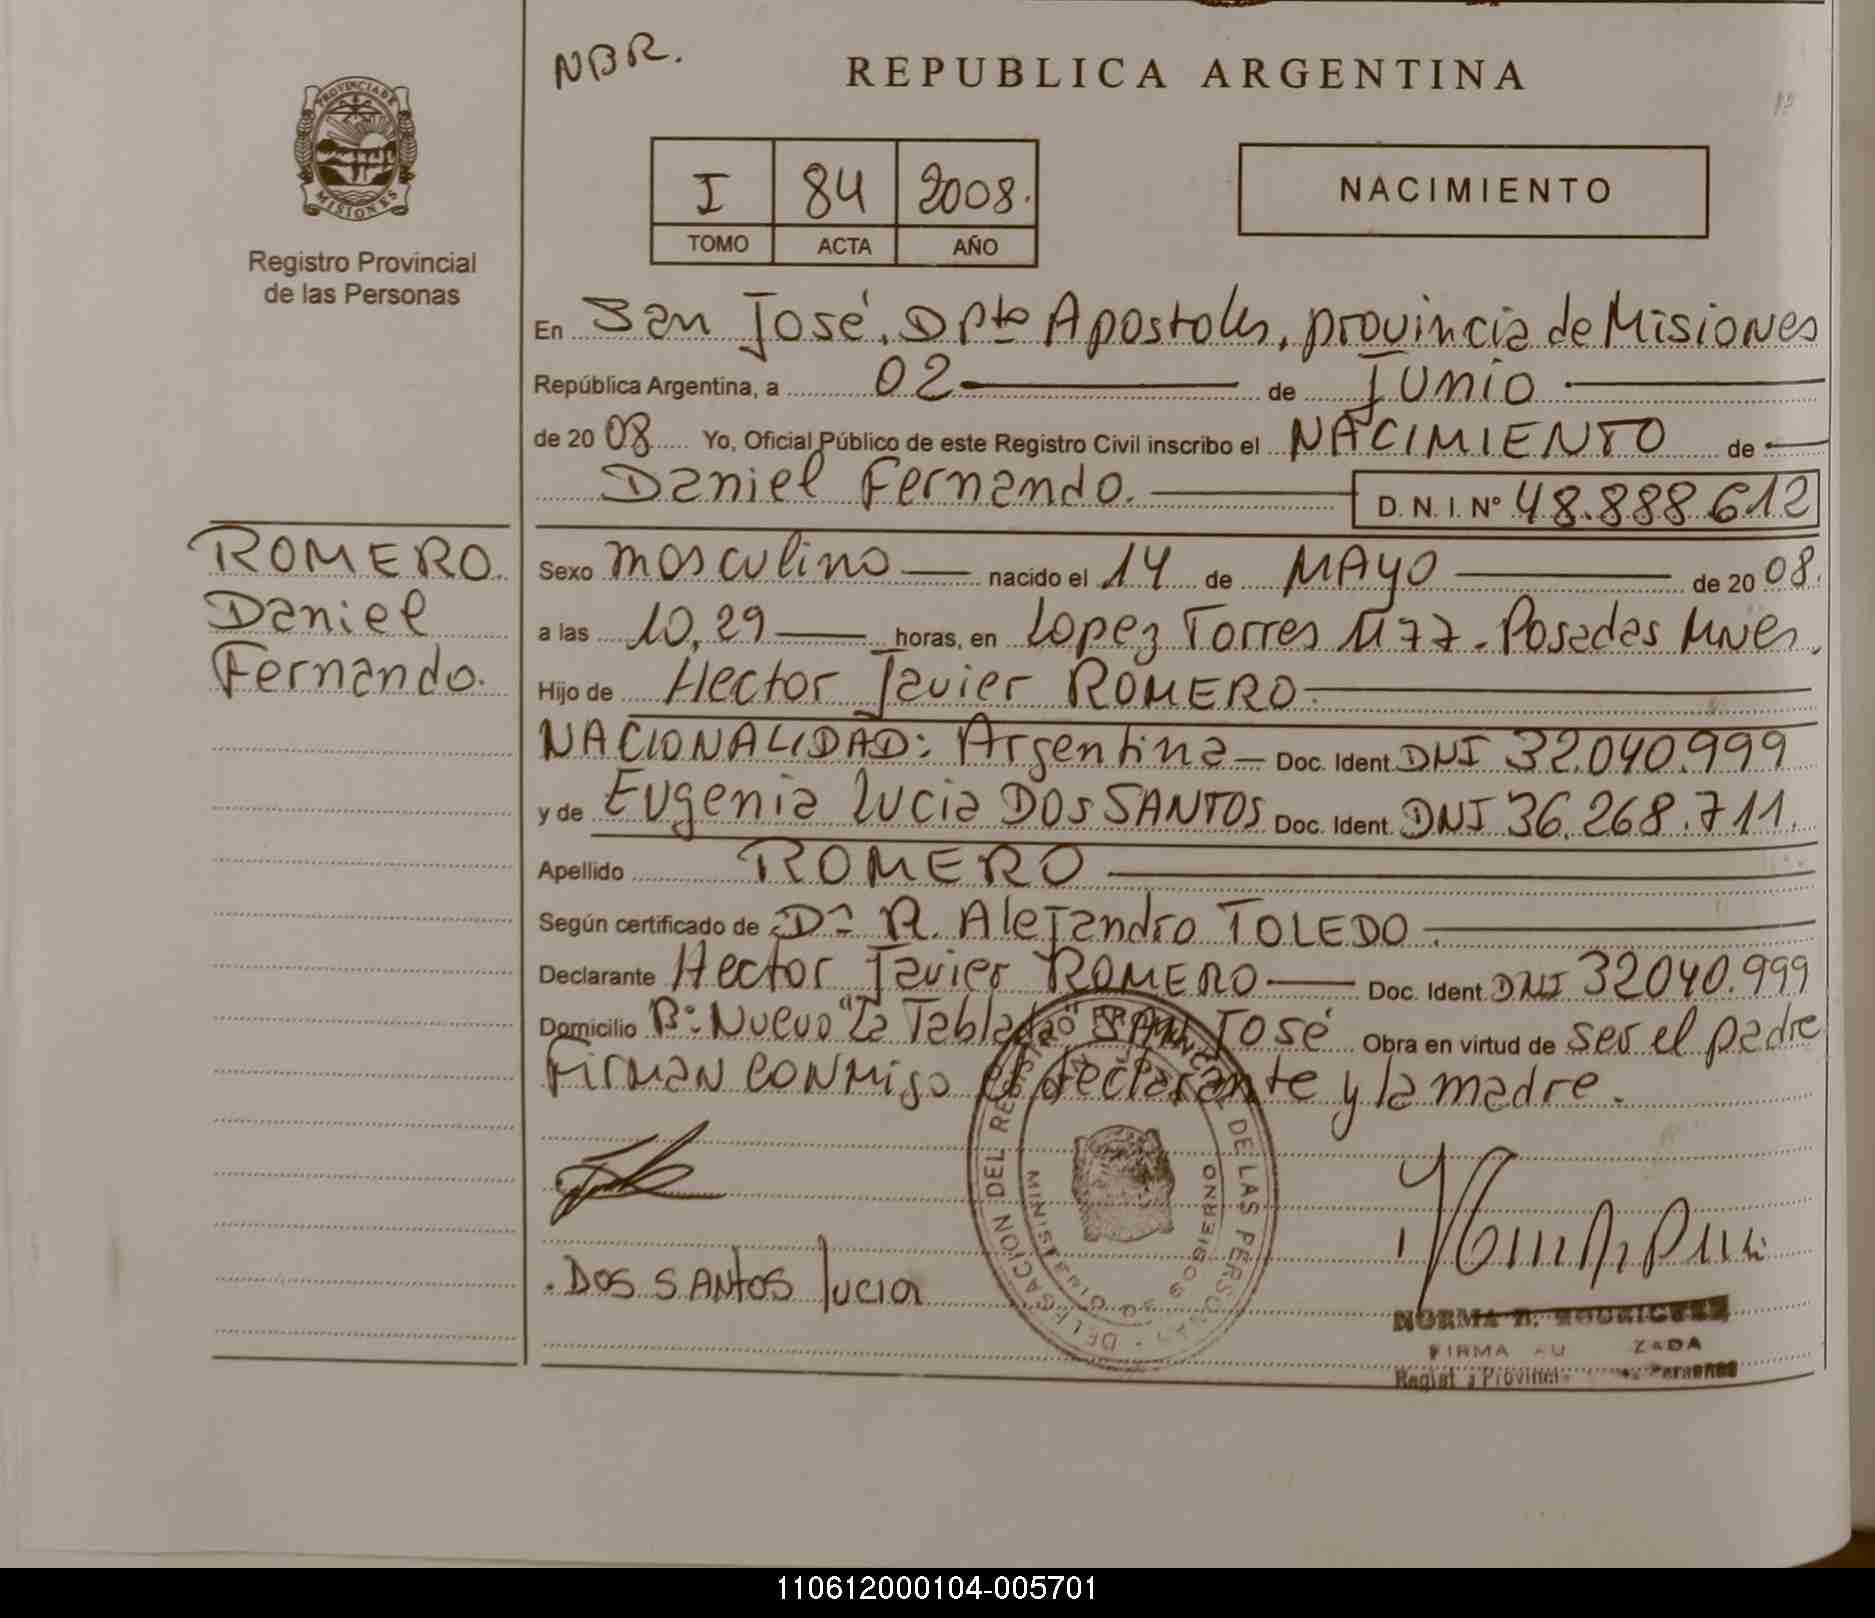 NBR.
REPUBLICA ARGENTINA
PROVINCIA DE
MISIONES
Registro Provincial
de las Personas
I 84 2008.
TOMO ACTA AÑO
NACIMIENTO
En San José, Dpto Apostoles, provincia de Misiones
República Argentina, a 02 de Junio
de 2008 Yo, Oficial Público de este Registro Civil inscribo el NACIMIENTO de
Daniel Fernando. D. N. I. Nº 48.888.612
ROMERO.
Daniel
Fernando.
Sexo masculino nacido el 14 de MAYO de 2008.
a las 10,29 horas, en Lopez Torres 1177. Posadas Mnes.
Hijo de Hector Javier ROMERO.
NACIONALIDAD: Argentina Doc. Ident. DNI 32.040.999
y de Eugenia Lucia DOS SANTOS Doc. Ident. DNI 36.268.711.
Apellido ROMERO
Según certificado de Dr R. Alejandro TOLEDO.
Declarante Hector Javier ROMERO Doc. Ident. DNI 32040.999
Domicilio Bº: Nuevo "La Tablada" SAN José Obra en virtud de ser el padre
Firman conmigo el declarante y la madre.
DELEGACION DEL REGISTRO PROVINCIAL DE LAS PERSONAS
MINISTERIO DE GOBIERNO
DOS SANTOS lucia
NORMA B. RODRIGUEZ
FIRMA